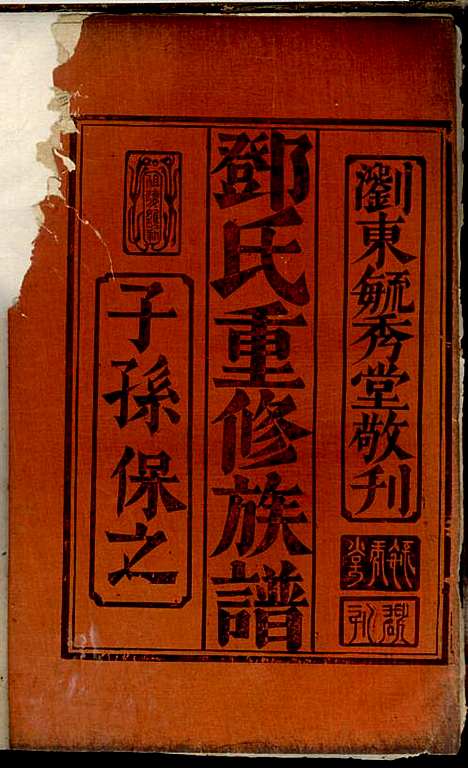 瀏東毓秀堂敬刊
毓秀堂
鄧氏重修族譜
子孫保之